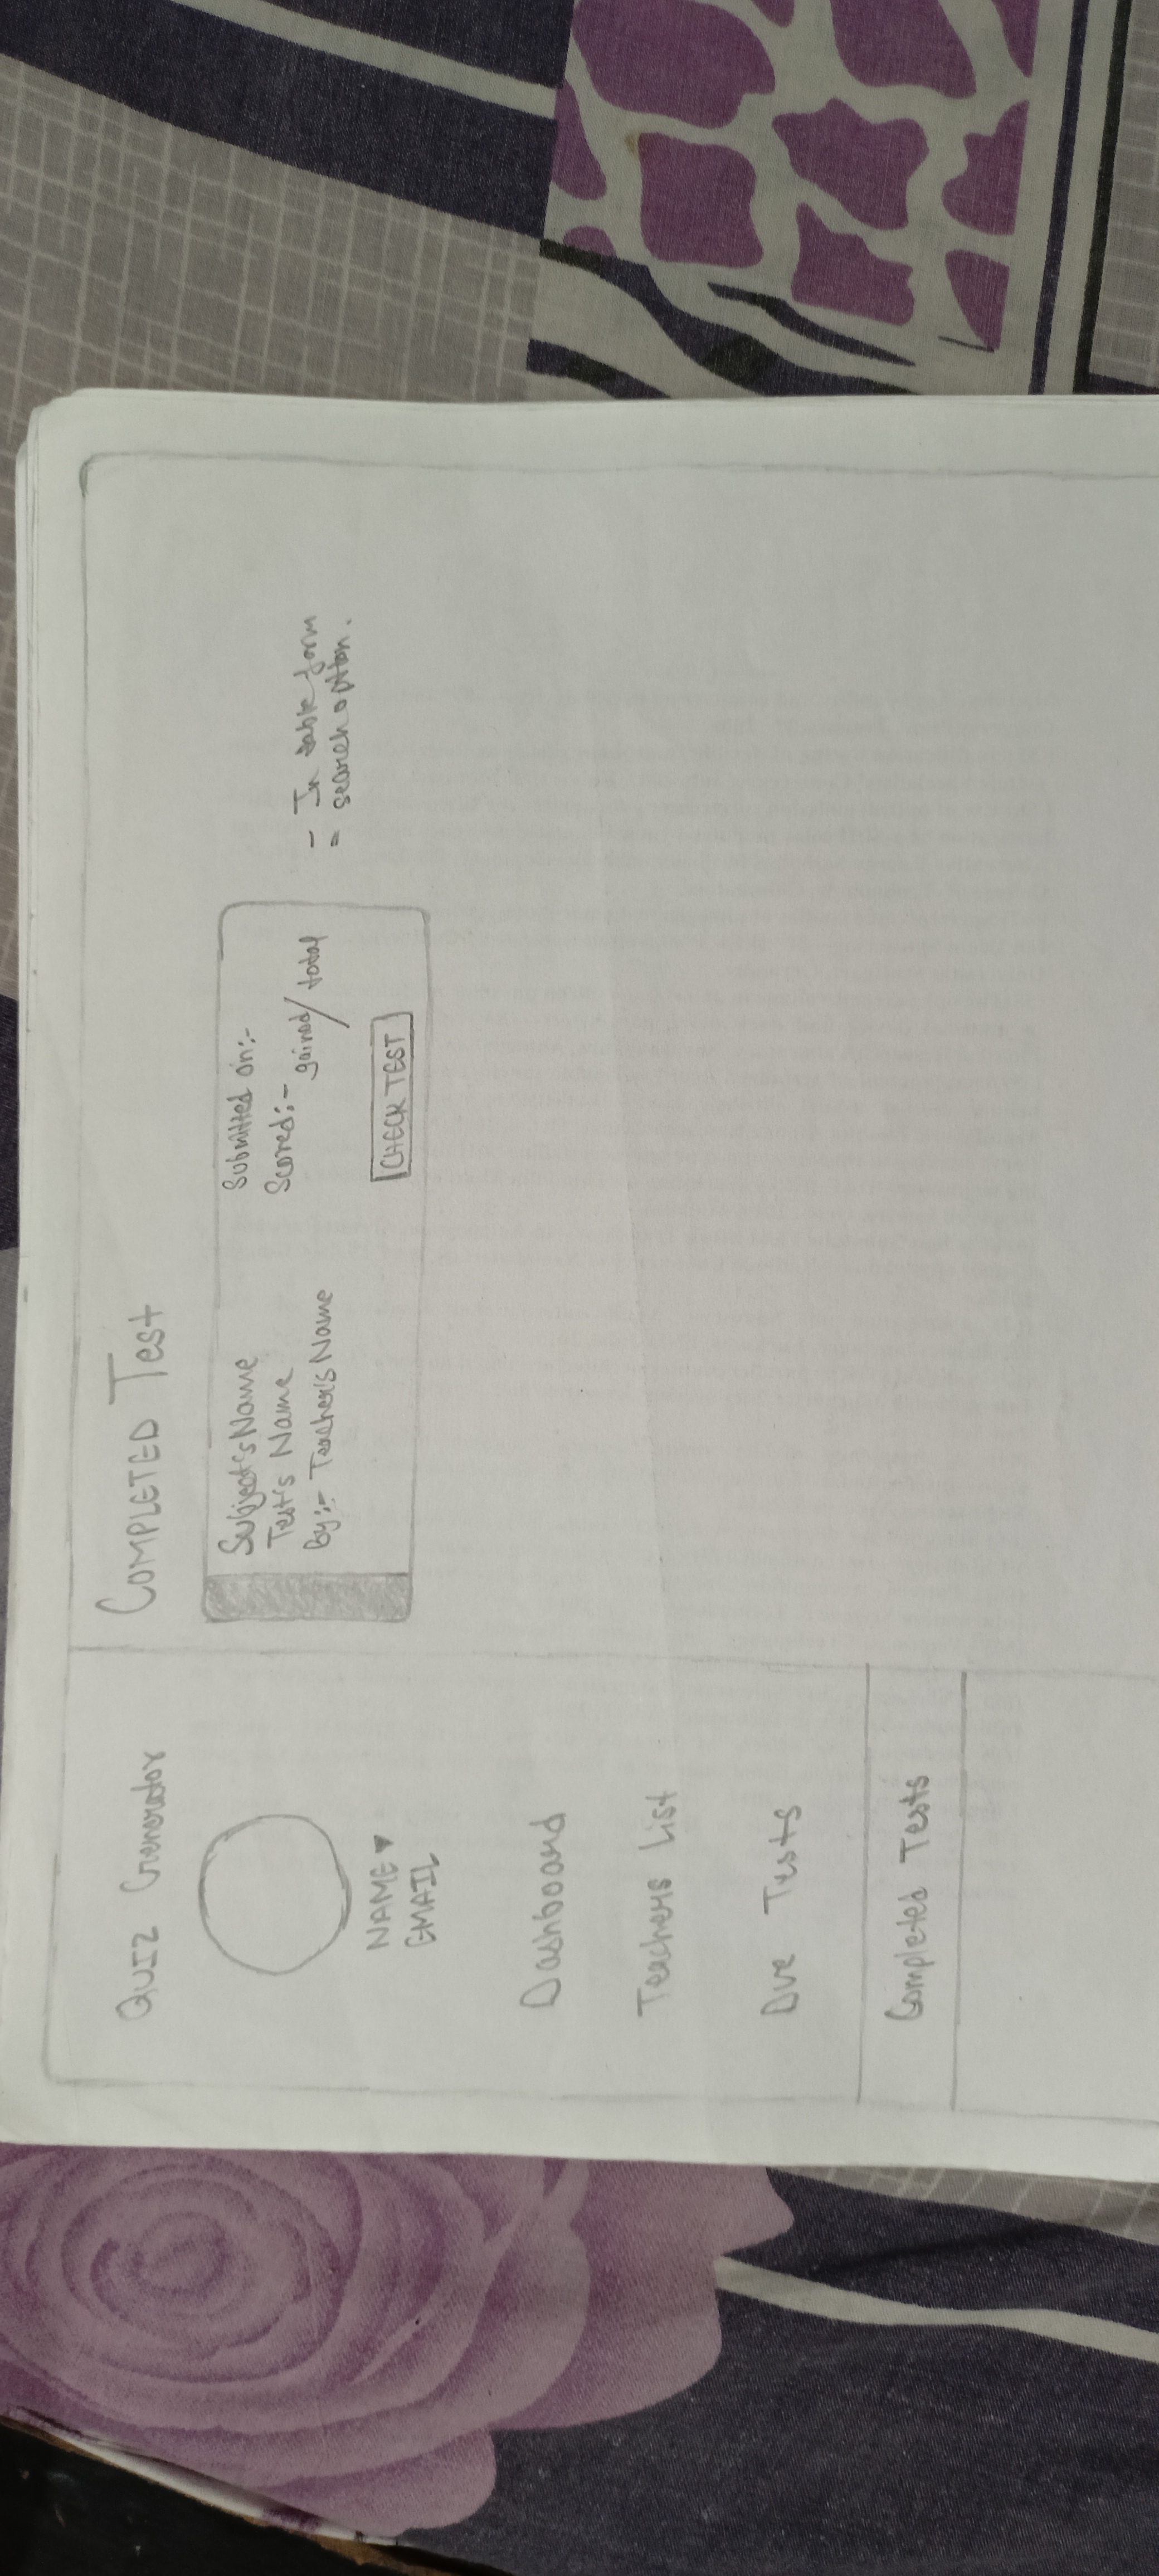 QUIZ Generator
NAME ▾
EMAIL
Dashboard
Teachers List
Due Tests
Completed Tests
COMPLETED Test
Subject's Name
Test's Name
By:- Teacher's Name
Submitted on:-
Scored:- gained/total
CHECK TEST
- In table form
= search option.